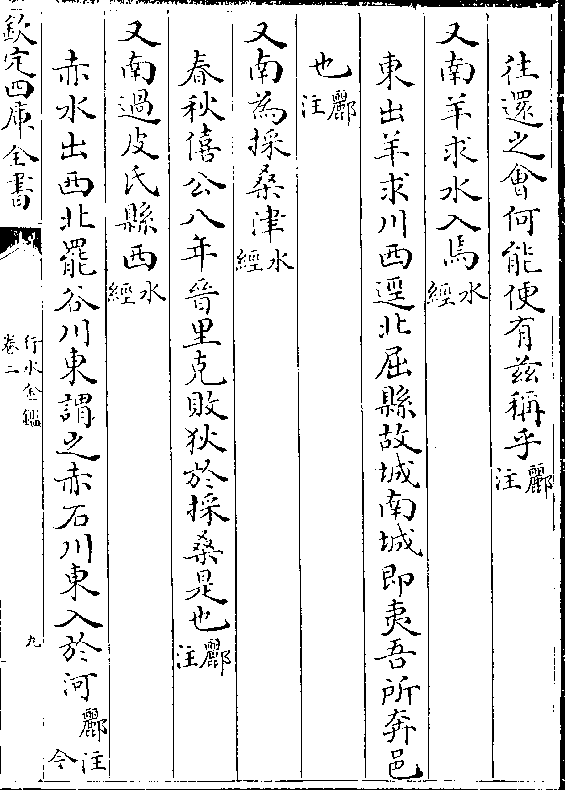 往還之會何能便有兹稱乎酈注
又南羊求水入焉水經
東出羊求川西逕北屈縣故城南城即夷吾所奔邑
也酈注
又南為採桑津水經
春秋僖公八年晉里克敗狄於採桑是也酈注
又南過皮氏縣西水經
赤水出西北罷谷川東謂之赤石川東入於河酈注今
欽定四庫全書
行水金鑑
卷二
九